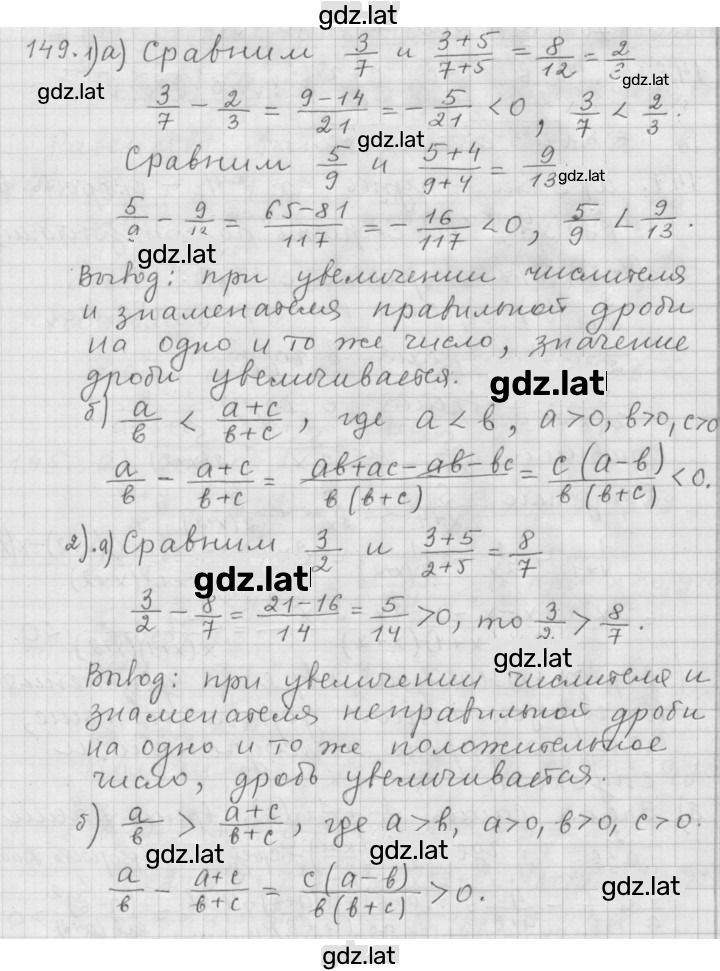 gdz.lat
149. 1) а) Сравним 3/7 и (3+5)/(7+5) = 8/12 = 2/3
gdz.lat gdz.lat
3/7 − 2/3 = (9−14)/21 = −5/21 < 0, 3/7 < 2/3.
gdz.lat
Сравним 5/9 и (5+4)/(9+4) = 9/13
gdz.lat
5/9 − 9/13 = (65−81)/117 = −16/117 < 0, 5/9 < 9/13.
gdz.lat
Вывод: при увеличении числителя
и знаменателя правильной дроби
на одно и то же число, значение
дроби увеличивается.
gdz.lat
б) a/b < (a+c)/(b+c), где a < b, a>0, b>0, c>0
a/b − (a+c)/(b+c) = (ab+ac−ab−bc)/(b(b+c)) = c(a−b)/(b(b+c)) < 0.
2). а) Сравним 3/2 и (3+5)/(2+5) = 8/7
gdz.lat
3/2 − 8/7 = (21−16)/14 = 5/14 > 0, то 3/2 > 8/7.
gdz.lat
Вывод: при увеличении числителя и
знаменателя неправильной дроби
на одно и то же положительное
число, дробь увеличивается.
б) a/b > (a+c)/(b+c), где a>b, a>0, b>0, c>0.
gdz.lat gdz.lat
a/b − (a+c)/(b+c) = c(a−b)/(b(b+c)) > 0.
gdz.lat
gdz.lat